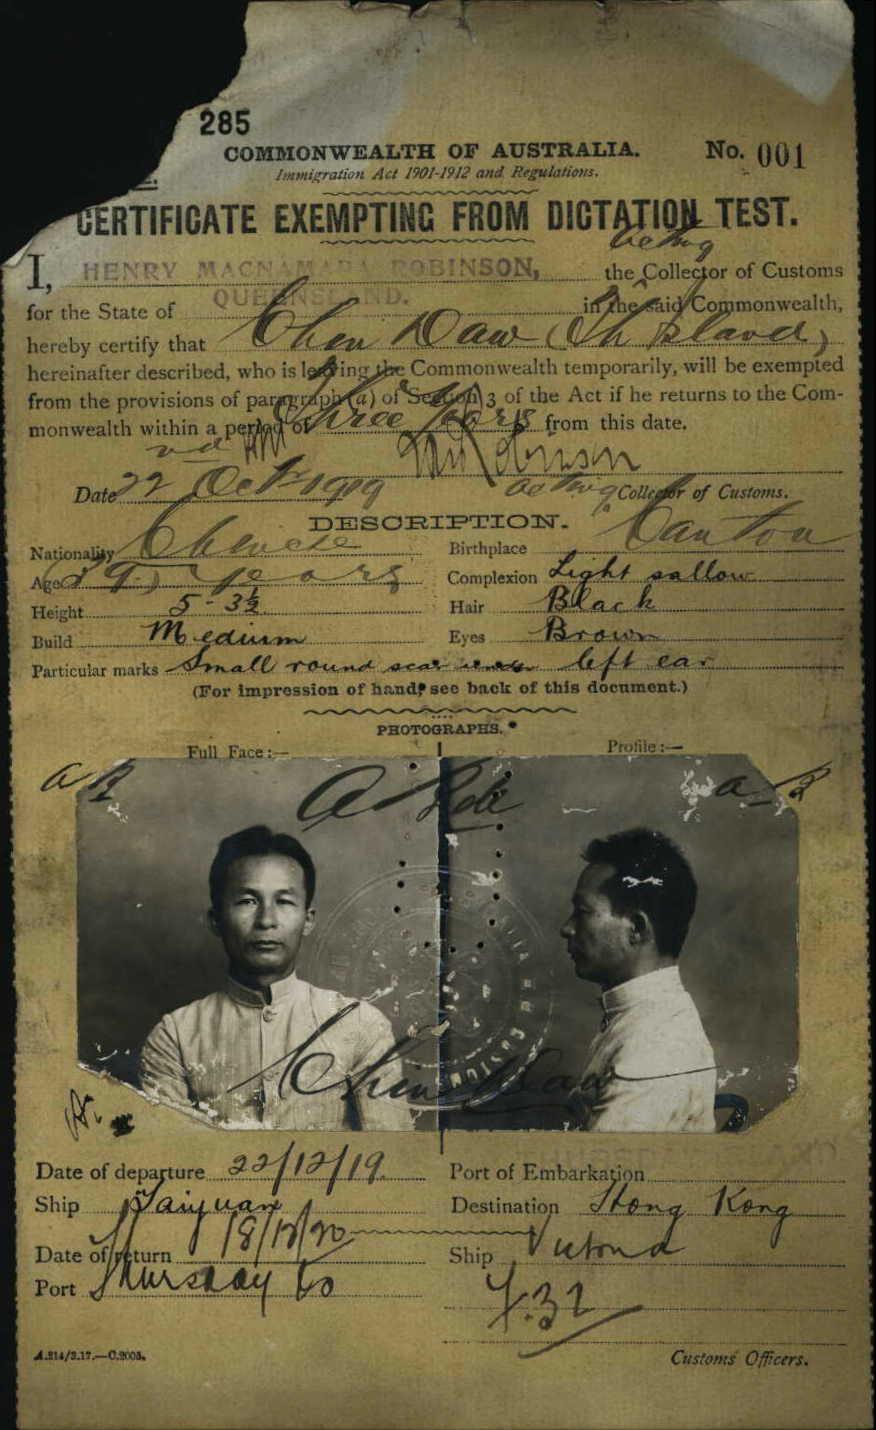 285
COMMONWEALTH OF AUSTRALIA. No. 001
Immigration Act 1901-1912 and Regulations.
CERTIFICATE EXEMPTING FROM DICTATION TEST.
acting
I, HENRY MACNAMARA ROBINSON, the Collector of Customs
for the State of QUEENSLAND. in the said Commonwealth,
hereby certify that Chin Daw (Th Island)
hereinafter described, who is leaving the Commonwealth temporarily, will be exempted
from the provisions of paragraph (a) of Section 3 of the Act if he returns to the Com-
monwealth within a period of Three Years from this date.
HM Robinson
Date 22nd Oct 1919 acting Collector of Customs.
DESCRIPTION.
Nationality Chinese Birthplace Canton
Age 29 years Complexion Light sallow
Height 5-3½ Hair Black
Build Medium Eyes Brown
Particular marks Small round scar left ear
(For impression of hand, see back of this document.)
PHOTOGRAPHS.
Full Face:— Profile:—
Chin Daw
Date of departure 22/12/19. Port of Embarkation
Ship Taiyuan Destination Hong Kong
Date of return 18/12/20 Ship Victoria
Port Thursday Is
A.214/3.17.—C.2005. Customs Officers.